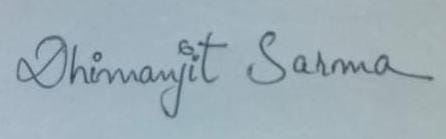 Dhimanjit Sarma